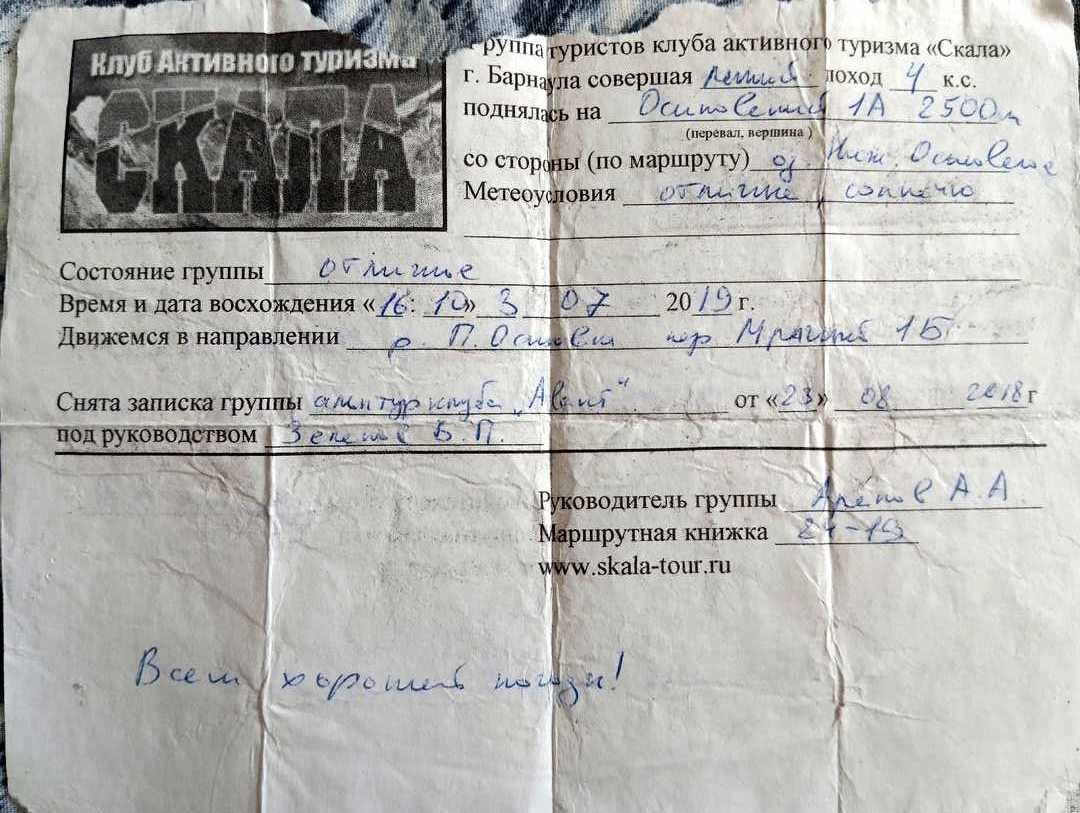 Клуб Активного туризма
СКАЛА
Группа туристов клуба активного туризма «Скала»
г. Барнаула совершая поход 4 к.с.
поднялась на 1А 2500м
(перевал, вершина )
со стороны (по маршруту) оз. Ниж.
Метеоусловия отличные, солнечно
Состояние группы отличное
Время и дата восхождения «16: 10» 3 07 2019 г.
Движемся в направлении р. П. пер 1Б
Снята записка группы турклуба „ " от «23» 08 2018 г
под руководством В.П.
Руководитель группы А.А.
Маршрутная книжка 21-19
www.skala-tour.ru
Всем хорошей погоды!